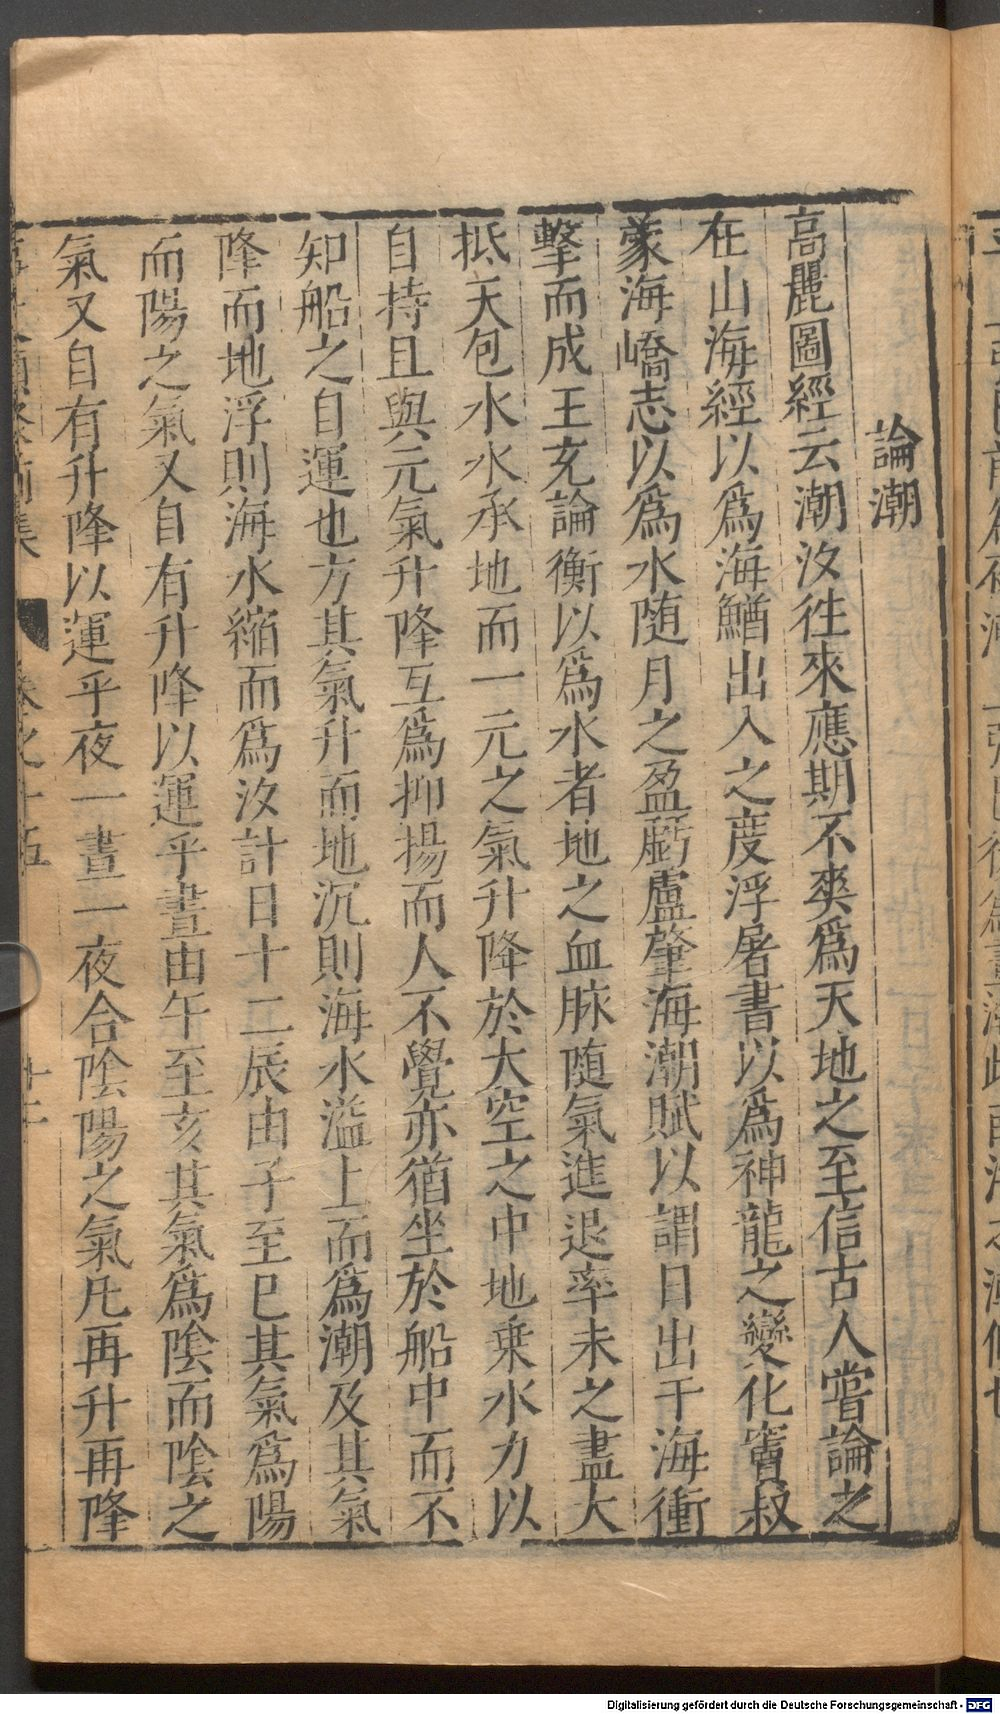 論潮
高麗圖經云潮汐徃來應期不爽爲天地之至信古人嘗論之
在山海經以爲海鰌出入之度浮屠書以爲神龍之變化竇叔
蒙海嶠志以爲水随月之盈虧盧肇海潮賦以謂日出于海衝
擊而成王充論衡以爲水者地之血脉随氣進退率未之盡大
抵天包水水承地而一元之氣升降於大空之中地乗水力以
自持且與元氣升降互爲抑揚而人不覺亦猶坐於船中而不
知船之自運也方其氣升而地沉則海水溢上而爲潮及其氣
降而地浮則海水縮而爲汐計日十二辰由子至巳其氣爲陽
而陽之氣又自有升降以運乎晝由午至亥其氣爲陰而陰之
氣又自有升降以運乎夜一晝一夜合陰陽之氣凡再升再降
卷之十五
Digitalisierung gefördert durch die Deutsche Forschungsgemeinschaft - DFG